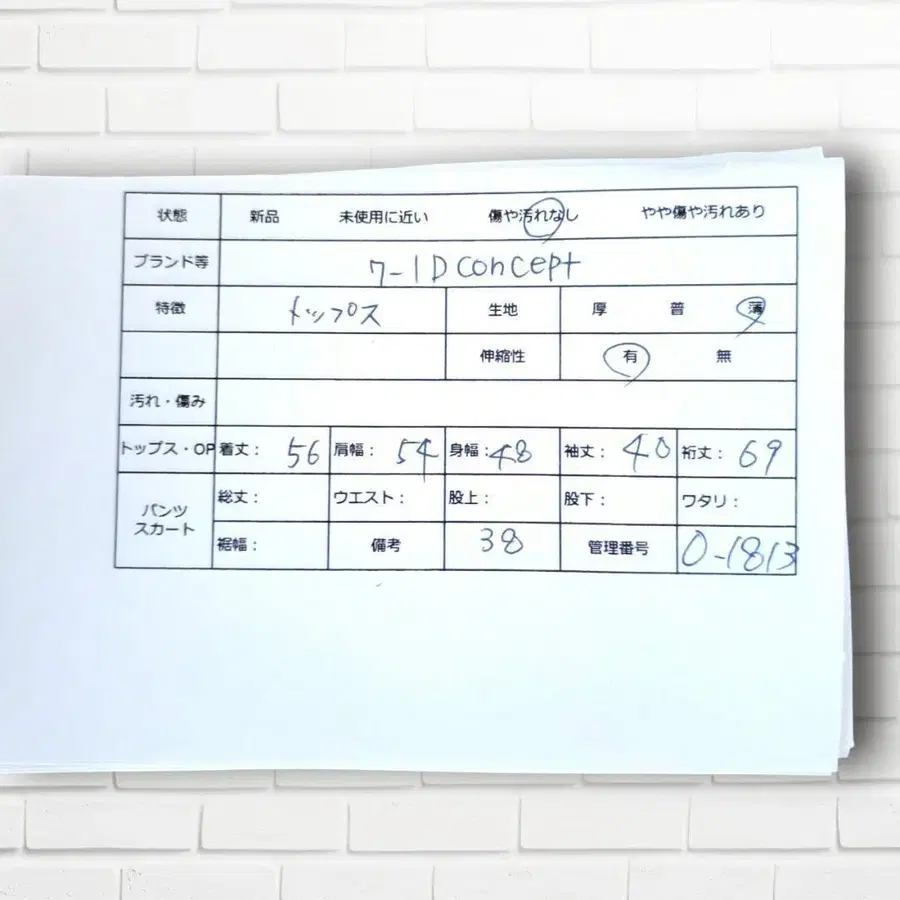 状態 新品 未使用に近い 傷や汚れなし やや傷や汚れあり
ブランド等 7-ID concept
特徴 トップス 生地 厚 普 薄
伸縮性 有 無
汚れ・傷み
トップス・OP 着丈: 56 肩幅: 54 身幅: 48 袖丈: 40 裄丈: 69
パンツ
スカート
総丈: ウエスト: 股上: 股下: ワタリ:
裾幅: 備考 38 管理番号 0-1813